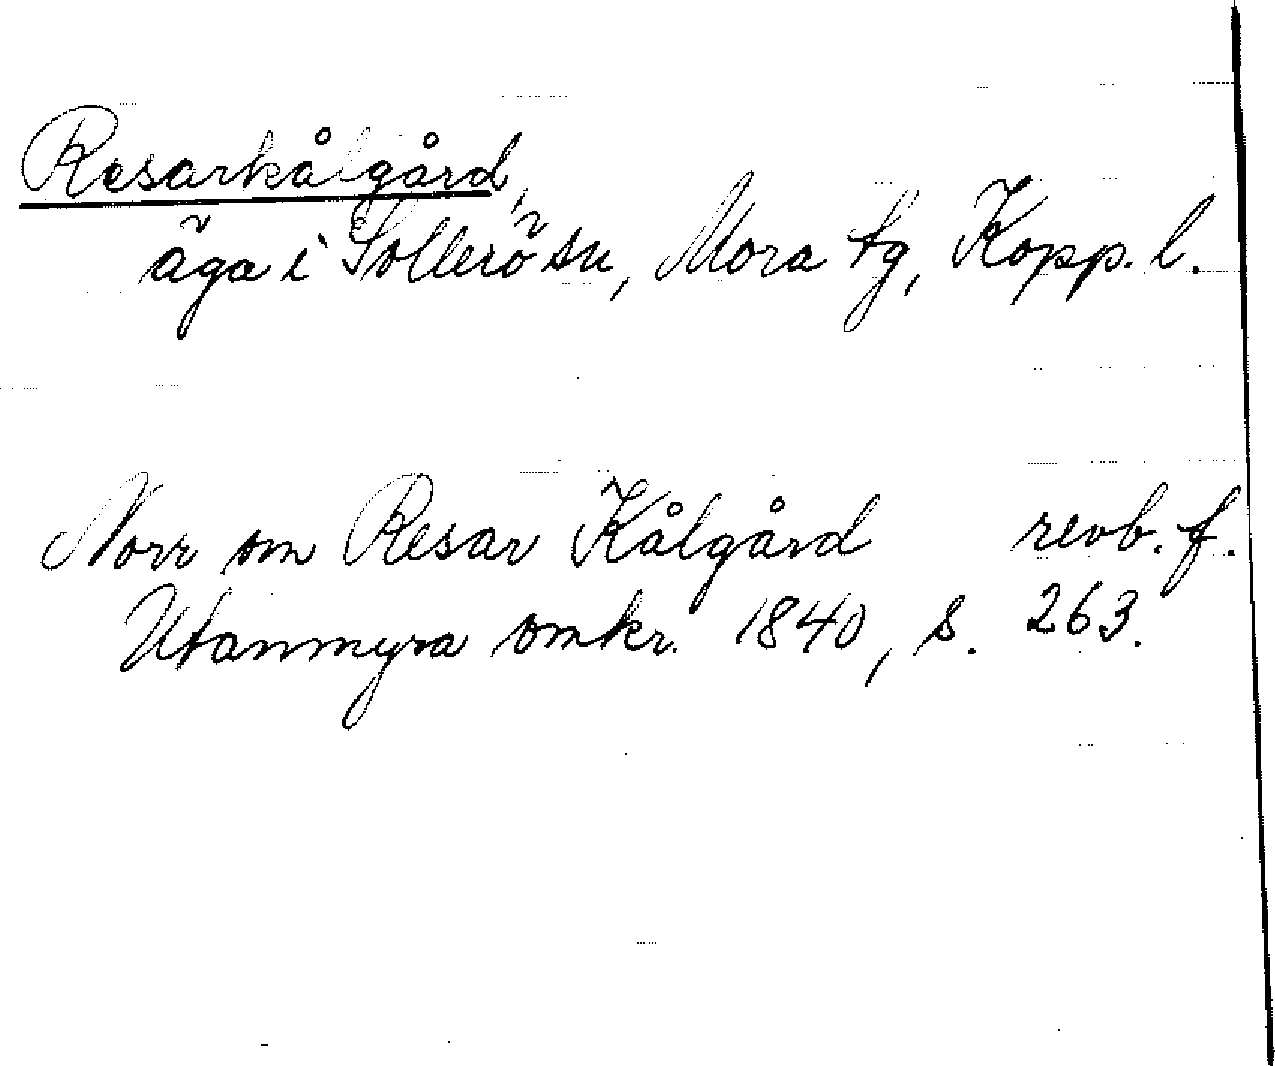 Resarkålgård,
äga i Sollerö sn, Mora tg, Kopp. l.
Norr om Resar Kålgård revb. f.
Utanmyra omkr. 1840, s. 263.